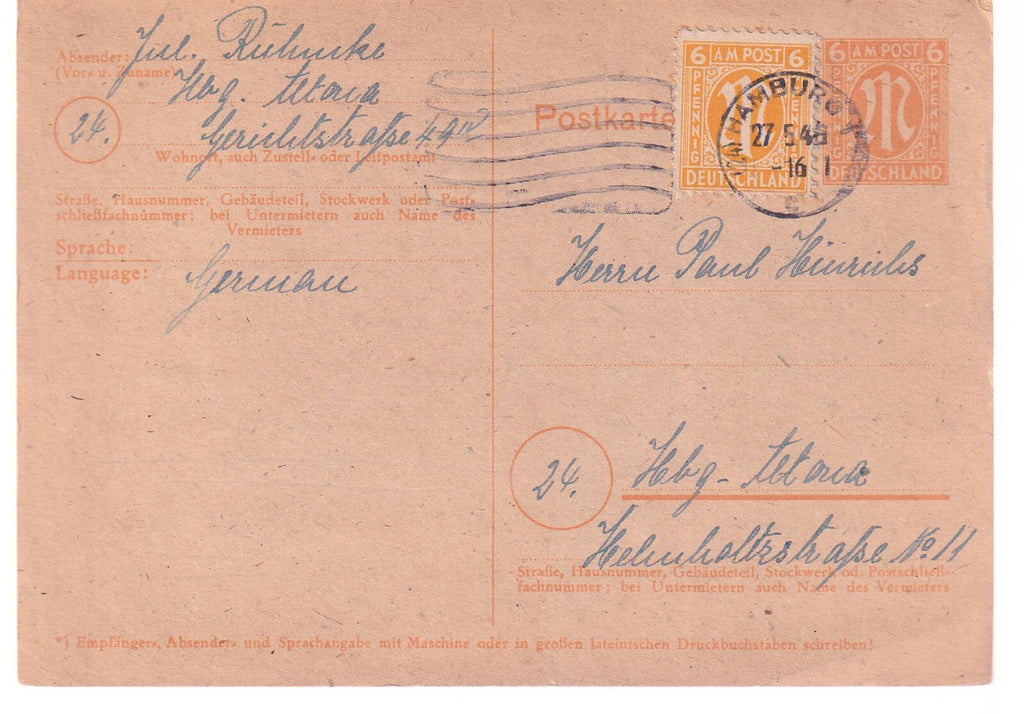 Absender:
(Vor- u. Zuname)
Jul. Rühmcke
Hbg. Altona
24.
Gerichtstraße 49 IV
Wohnort, auch Zustell- oder Leitpostamt
Straße, Hausnummer, Gebäudeteil, Stockwerk oder Post-
schließfachnummer; bei Untermietern auch Name des
Vermieters
Sprache:
Language:
German
Postkarte
6 AM POST 6
PFENNIG PFENNIG
M
DEUTSCHLAND
6 AM POST 6
PFENNIG PFENNIG
M
DEUTSCHLAND
HAMBURG 1
27 5.46
-16
Herrn Paul Hinrichs
24.
Hbg-Altona
Helmholtzstraße No 11
Straße, Hausnummer, Gebäudeteil, Stockwerk od. Postschließ-
fachnummer; bei Untermietern auch Name des Vermieters
*) Empfänger-, Absender- und Sprachangabe mit Maschine oder in großen lateinischen Druckbuchstaben schreiben!